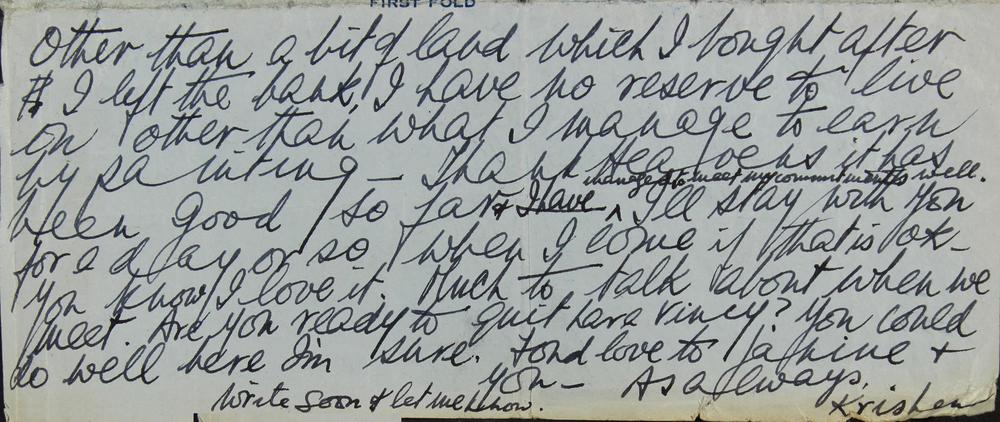 FIRST FOLD
Other than a bit of land which I bought after
I left the bank, I have no reserve to live
on other than what I manage to earn
by painting — Thank Heavens it has
managed to meet my commitments well.
been good so far & I have ^ I'll stay with you
for a day or so when I come if that is ok —
You know I love it. Much to talk about when we
meet. Are you ready to quit here Vincy? You could
do well here I'm sure. Fond love to Janine +
you — As always,
Write soon & let me know.
Krishen